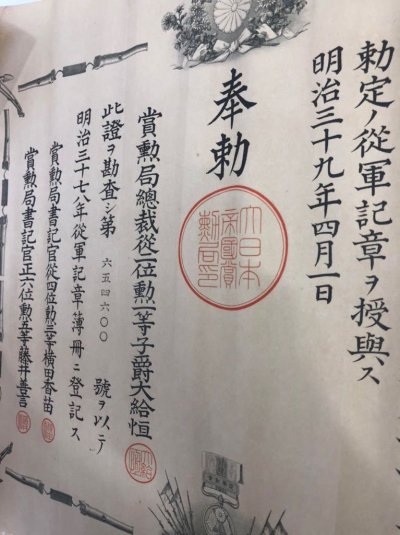 勅定ノ從軍記章ヲ授與ス
明治三十九年四月一日
奉勅
大日本
帝國賞
勲局印
賞勲局總裁從二位勲一等子爵大給恒
此證ヲ勘査シ第六五四六〇〇號ヲ以テ
明治三十七八年從軍記章簿冊ニ登記ス
賞勲局書記官從四位勲三等横田香苗
賞勲局書記官正六位勲五等藤井善言